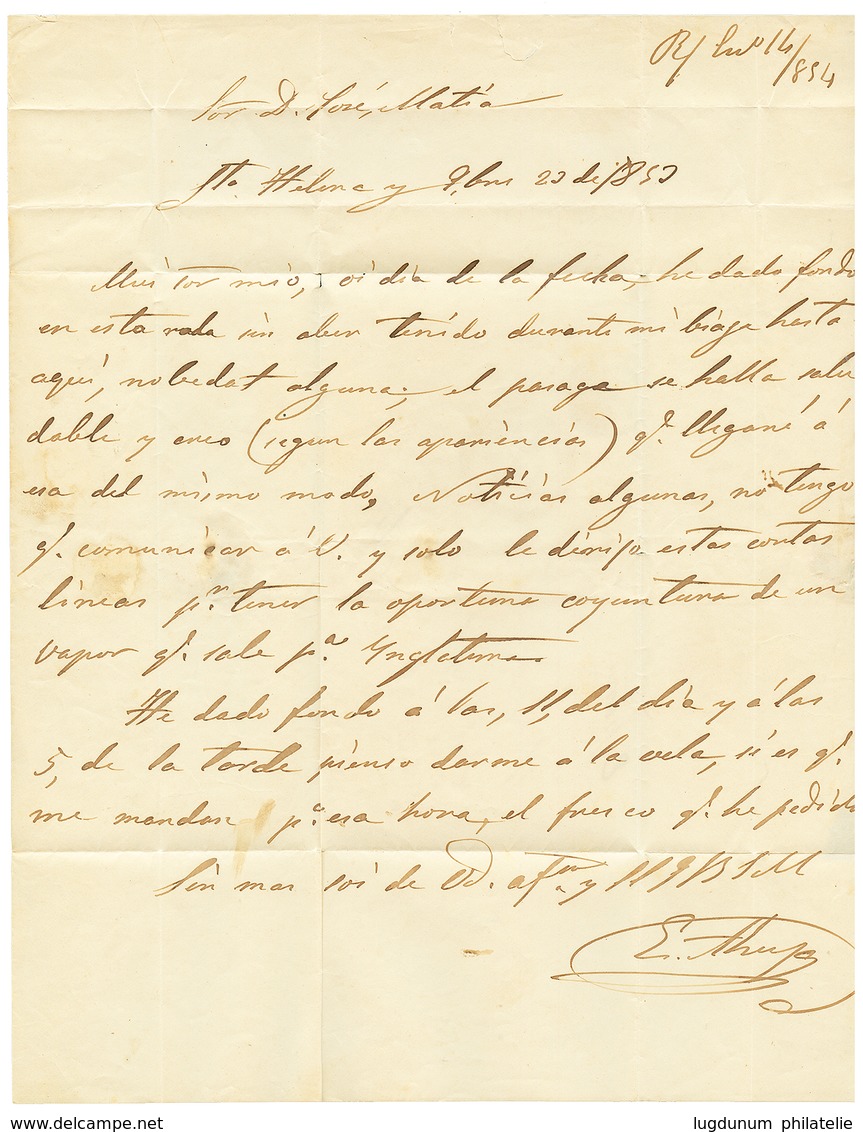 R/ En.º 14/854
Sor. D. José Matia
Sta. Helena y 9,bre 23 de 1853
Mui sor mio, oi dia de la fecha, he dado fondo
en esta rada sin aber tenido durante mi biage hasta
aqui, nobedat alguna; el pasage se halla salu
dable y creo (segun las apariencias) q.e llegaré á
esa del mismo modo, Noticias algunas, no tengo
q.e comunicar á V. y solo le dirijo estas cortas
lineas p.r tener la oportuna coyuntura de un
vapor q.e sale p.a Ynglaterra
He dado fondo á las, 11, del dia y á las
5, de la tarde pienso darme á la vela, si es q.e
me mandan p.a esa hora, el fresco q.e he pedido
Sin mas soi de Vd. afmo y SSQBSM
E.
www.delcampe.net
lugdunum philatelie